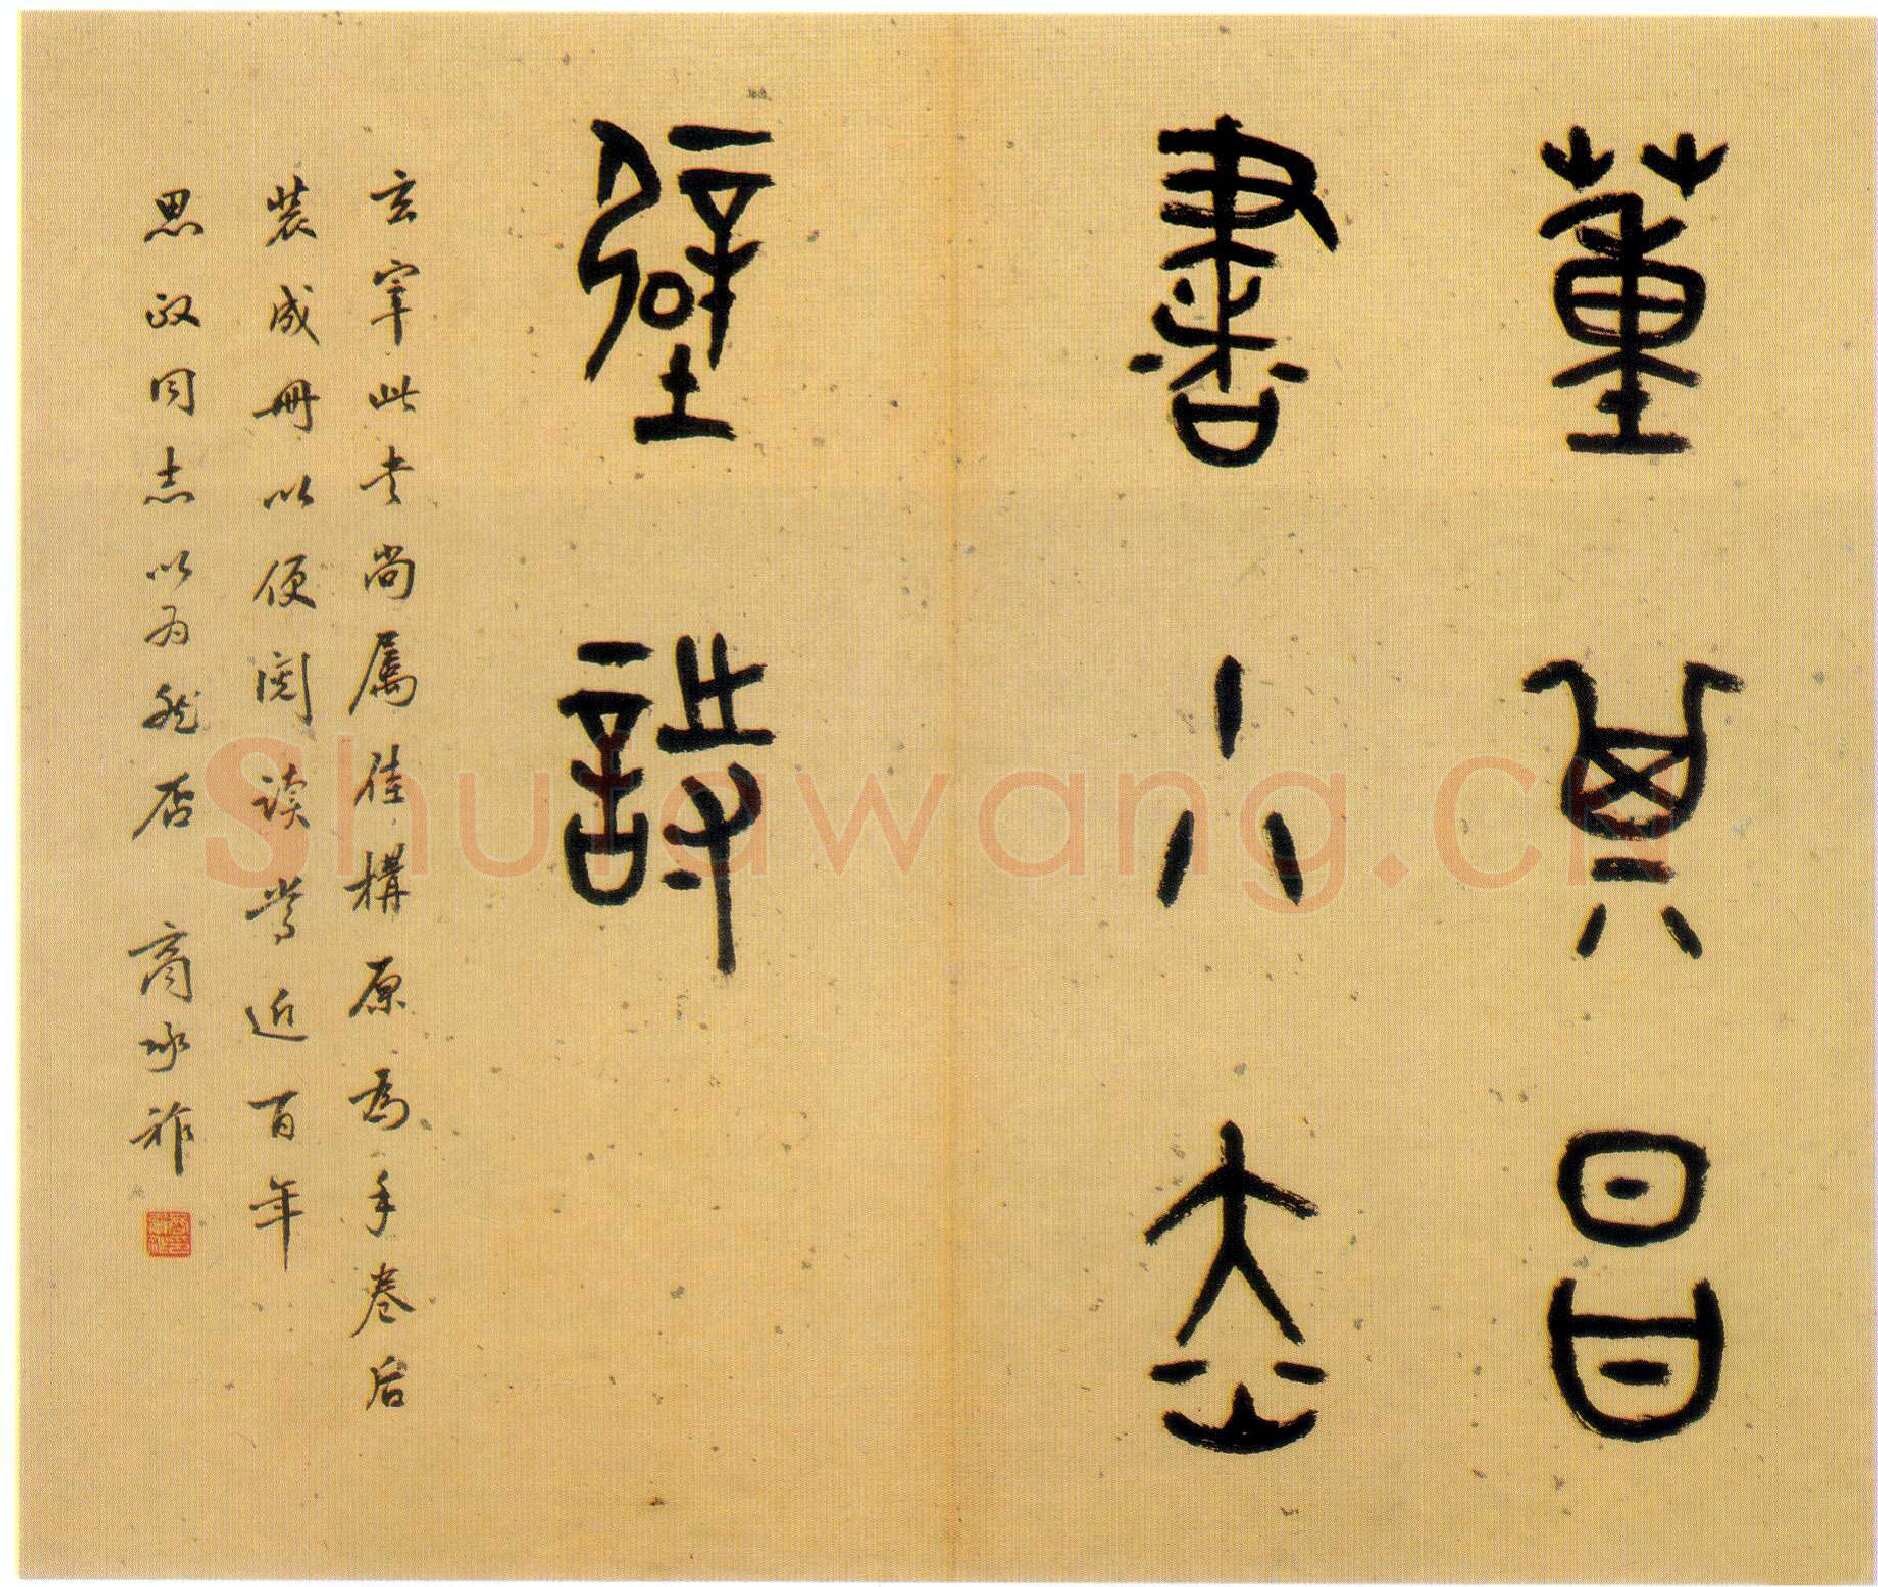 董其昌
書小赤
壁詩
玄宰此书尚属佳構原為手卷后
装成册以便阅读當近百年
思政同志以为然否 商承祚
Shufawang.cn